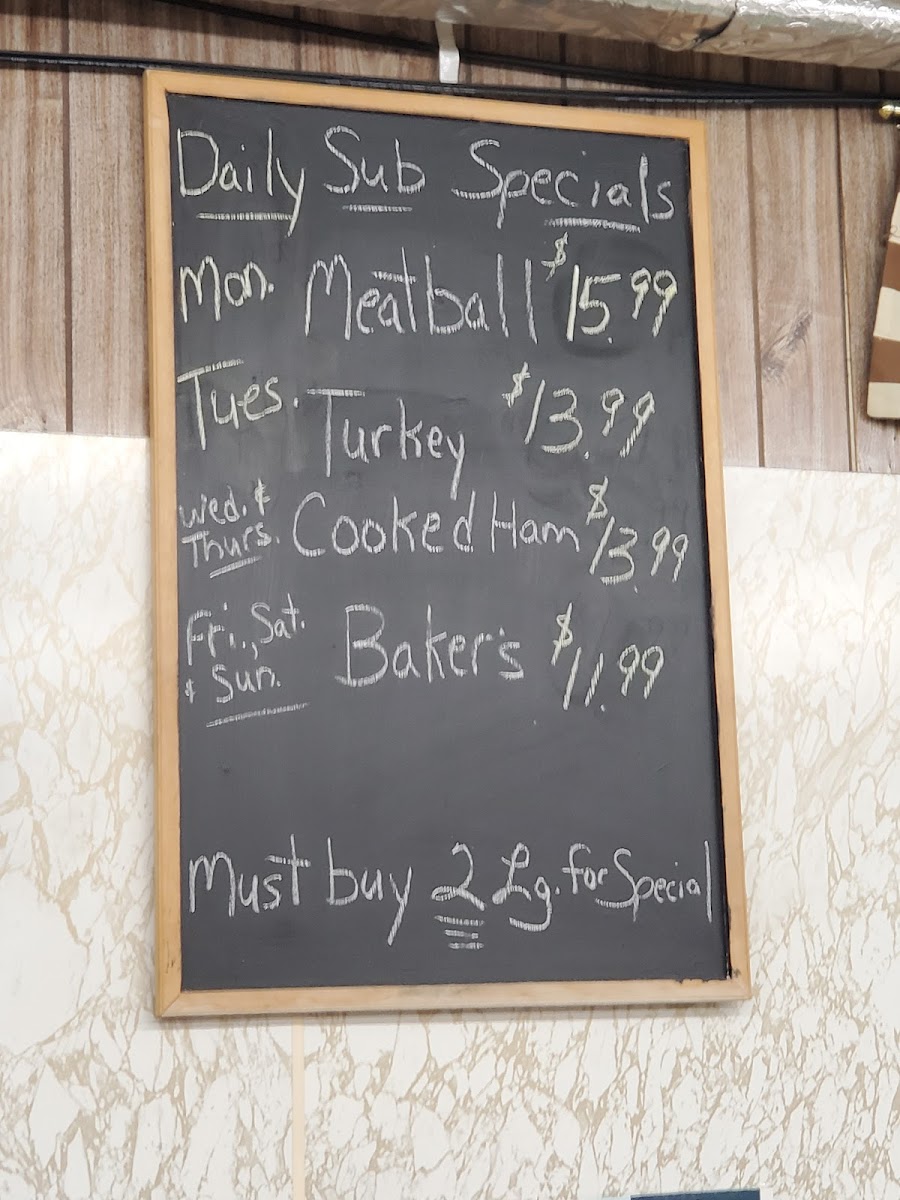 Daily Sub Specials
Mon. Meatball $15.99
Tues. Turkey $13.99
Wed. &
Thurs. Cooked Ham $13.99
Fri., Sat.
& Sun. Baker's $11.99
Must buy 2 Lg. for Special